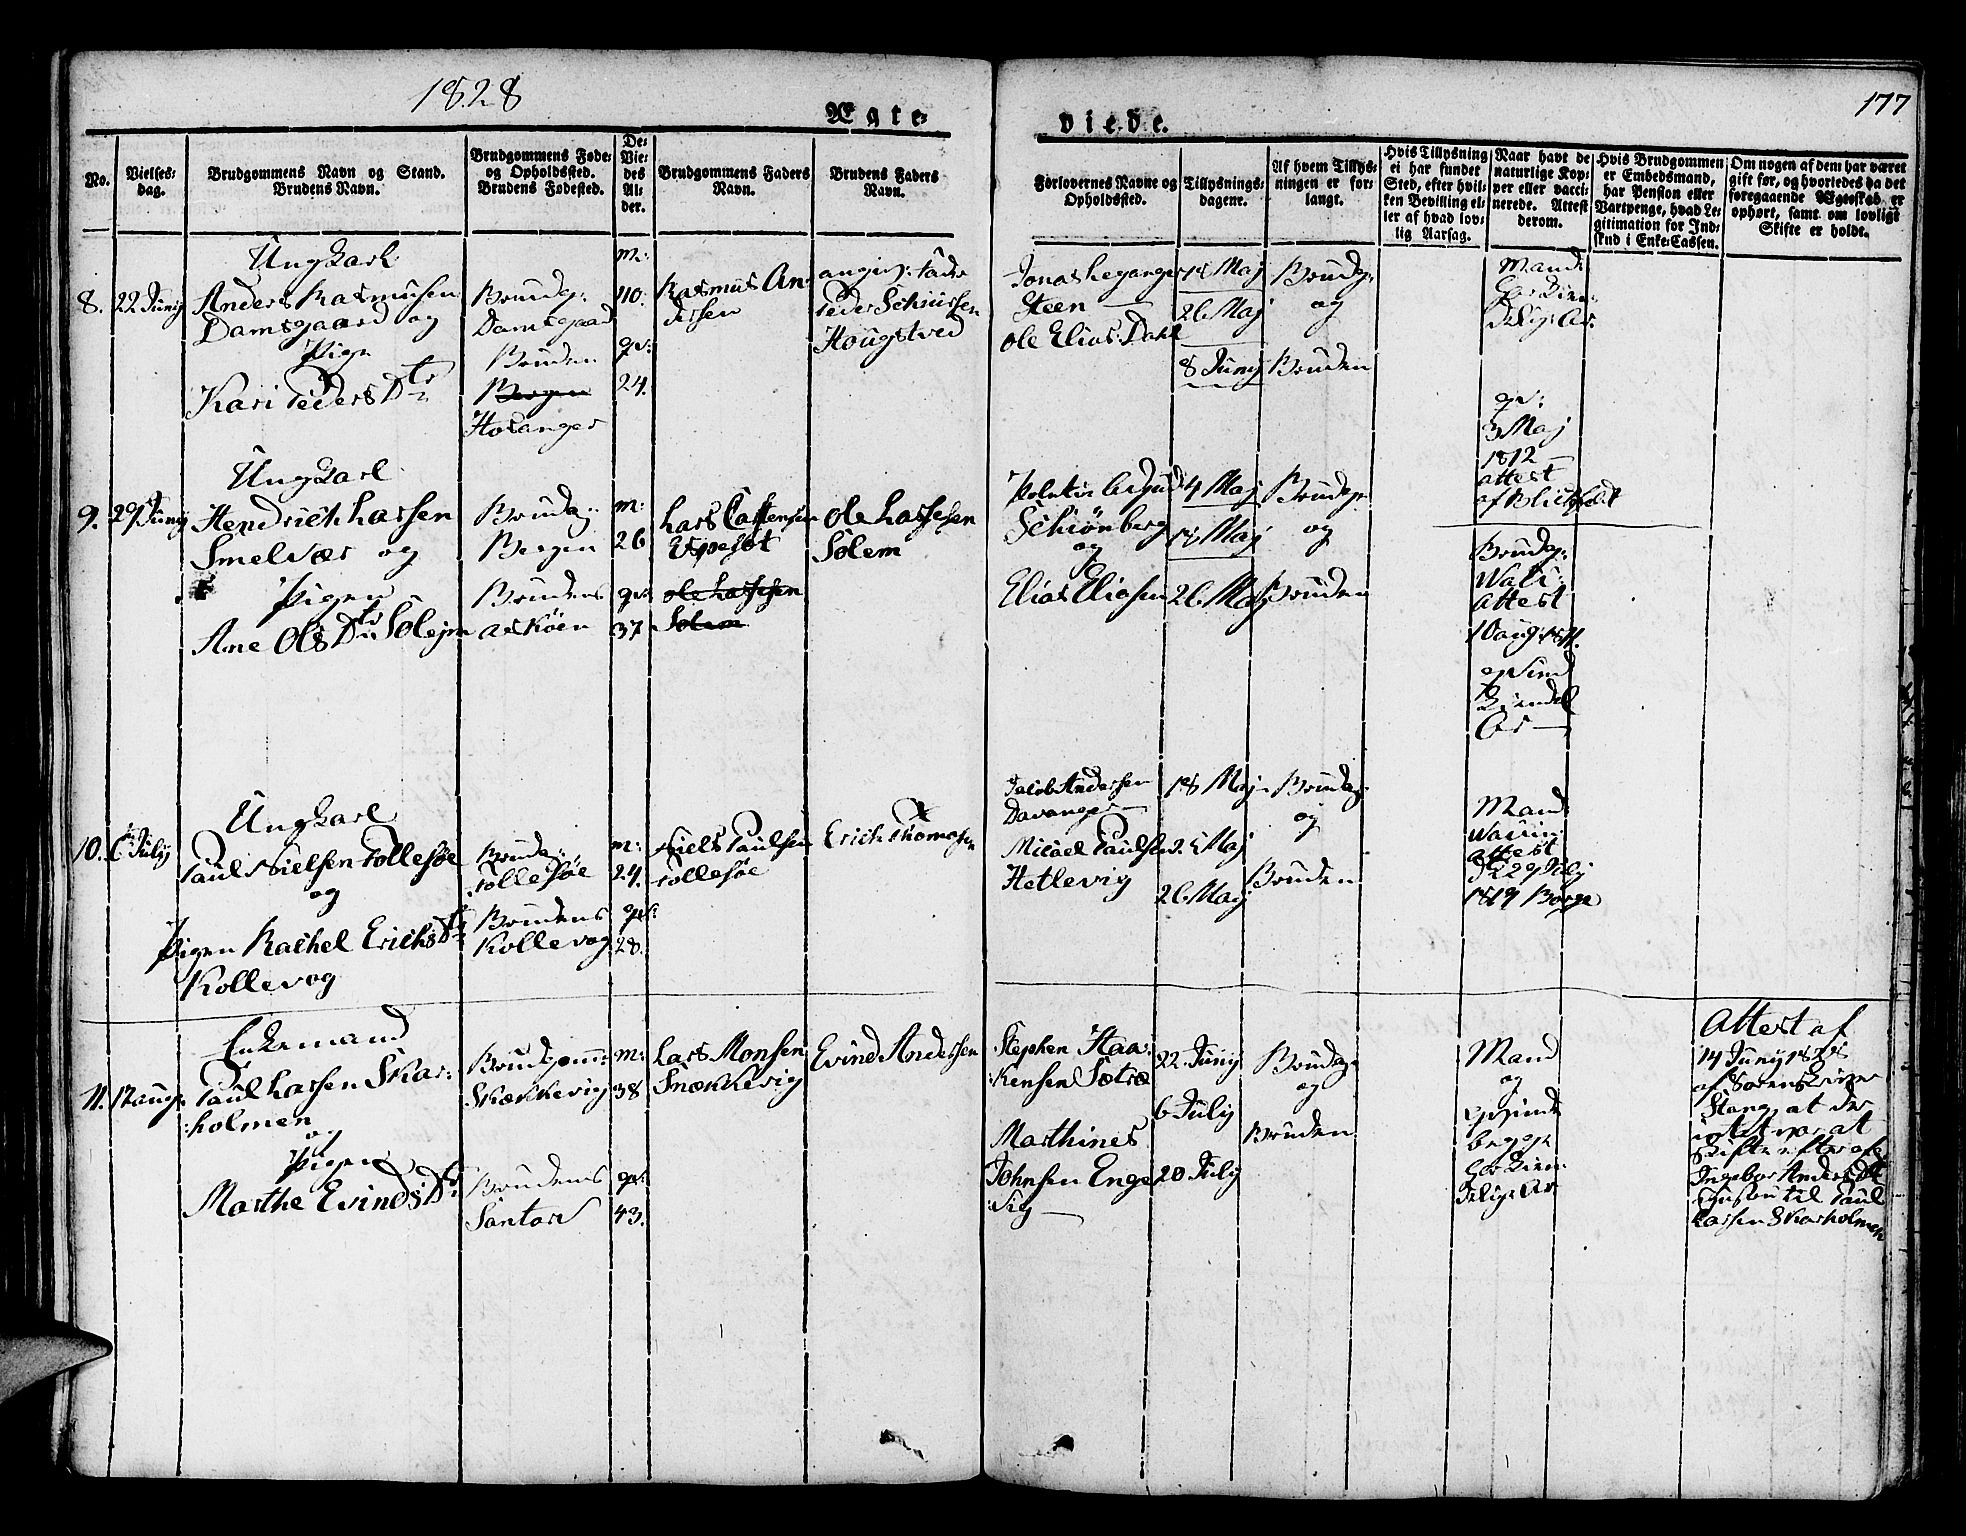 1828
Ægte-
viede.
177
No.
Vielses-
dag.
Brudgommens Navn og Stand.
Brudens Navn.
Brudgommens Føde-
og Opholdssted.
Brudens Fødested.
De
Vie-
des
Al-
der.
Brudgommens Faders
Navn.
Brudens Faders
Navn.
Forlovernes Navne og
Opholdssted.
Tillysnings-
dagene.
Af hvem Tillys-
ningen er for-
langt.
Hvis Tillysning
ei har fundet
Sted, efter hvil-
ken Bevilling el-
ler af hvad lov-
lig Aarsag.
Naar havt de
naturlige Kop-
per eller vacci-
nerede. Attest
derom.
Hvis Brudgommen
er Embedsmand,
har Pension eller
Vartpenge, hvad Le-
gitimation for Ind-
skud i Enke-Cassen.
Om nogen af dem har været
gift før, og hvorledes da det
foregaaende Ægteskab er
ophørt, samt om lovligt
Skifte er holdt.
8.
22 Juny
Ungkarl
Anders Rasmusen
Damsgaard og
Pige
Kari Peders Dtr
Brudg:
Damsgaad
Bruden
Bergen
Hosanger
m:
40.
qv:
24.
Rasmus An-
dersen
angiv: Fader
Peder Schiursen
Hougstved
Jonas Leganger
Steen
Ole Elias Dahl
18 Maj
26 Maj
8 Juny
Brudg:
og
Bruden
Mand:
qv:
3 Maj
1812
attest
af Blichfeldt
9.
29 Juny
Ungkarl
Hendrich Larsen
Smelvær og
Pigen
Ane Ols Dtr Solem
Brudg:
Bergen
Brudens
Askøen
m:
26
qv:
37
Lars
Espeset
Ole Lassesen
Solem
Ole Lassesen
Solem
Schiønberg
og
Elias Eliasen
4 Maj
18 Maj
26 Maj
Brudg:
og
Bruden
Brudg:
Attest
10 aug: 1811.
10.
6 July
Ungkarl
Paul Nielsen Follesøe
og
Pigen Rachel Erichs Dtr
Kollevog
Brudg:
Follesøe
Brudens
Kollevog
m:
24.
qv:
28.
Niels Paulsen
Follesøe
Erich Thomasen
Jacob Andersen
Davanger
Micael Paulsen
Hetlevig
18 Maj
25 Maj
26 Maj
Brudg:
og
Bruden
Mand
attest
29 July
1819
11.
17 aug:
Enkemand
Paul Larsen Skar-
holmen
og
Pigen
Marthe Evinds Dtr
Brudgom:
Skækkevig
Brudens
Santor
m:
38
qv:
43.
Lars Monsen
Snækkevig
Evind Andersen
Stephen Haa-
kensen Sætræ
Marthines
Johnsen Enge-
sig
22 Juny
6 July
20 July
Brudg:
og
Bruden
Mand
og
qvinde
begge
Attest af
14 Juny 1828
af Sorenskriver
Stang, at der
intet var at
skifte efter afd
Ingebor Anders Dtr
Paul
Larsen Skarholmen